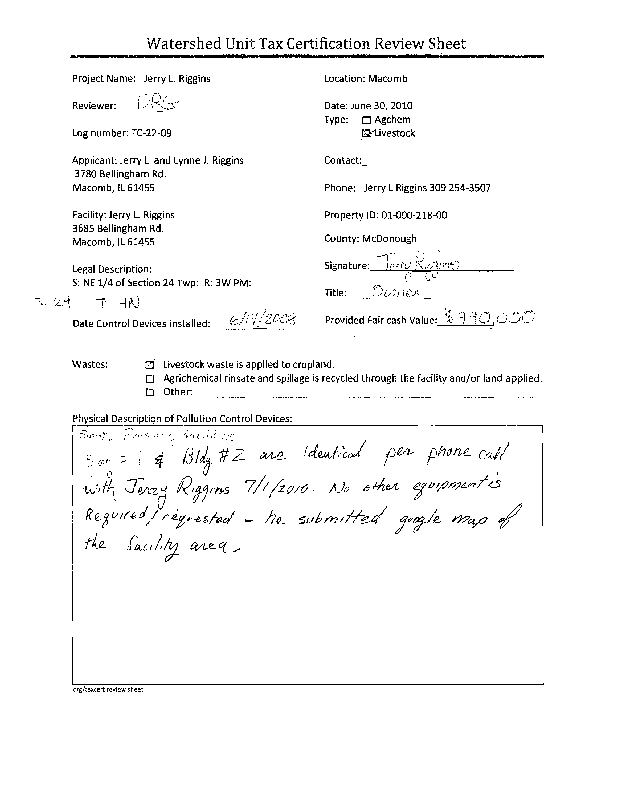 Watershed Unit Tax Certification Review Sheet
Project Name: Jerry L. Riggins
Location: Macomb
Reviewer: DRG
Date: June 30, 2010
Type: Agchem
Log number: TC-22-09
Livestock
Applicant: Jerry L. and Lynne J. Riggins
Contact:_
3780 Bellingham Rd.
Macomb, IL 61455
Phone: Jerry L Riggins 309 254-3507
Facility: Jerry L. Riggins
Property ID: 01-000-218-00
3685 Bellingham Rd.
Macomb, IL 61455
County: McDonough
Legal Description:
Signature: Jerry Riggins
S: NE 1/4 of Section 24 Twp: R: 3W PM:
Title: Owner
24 T 4N
Date Control Devices installed:
Provided Fair cash Value:
Wastes:
Livestock waste is applied to cropland.
Agrichemical rinsate and spillage is recycled through the facility and/or land applied.
Other:
Physical Description of Pollution Control Devices:
1 & Bldg #2 are identical per phone call
with Jerry Riggins 7/1/2010. No other equipment is
Required/requested - he submitted google map of
the facility area.
org/taxcert review sheet